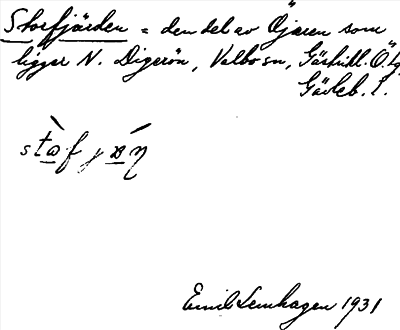 Storfjärden = den del av Öjaren som
ligger N. Digerön, Valbo sn, Gästrikl. Ö. tg
Gävleb. l.
Emil Lenhagen 1931